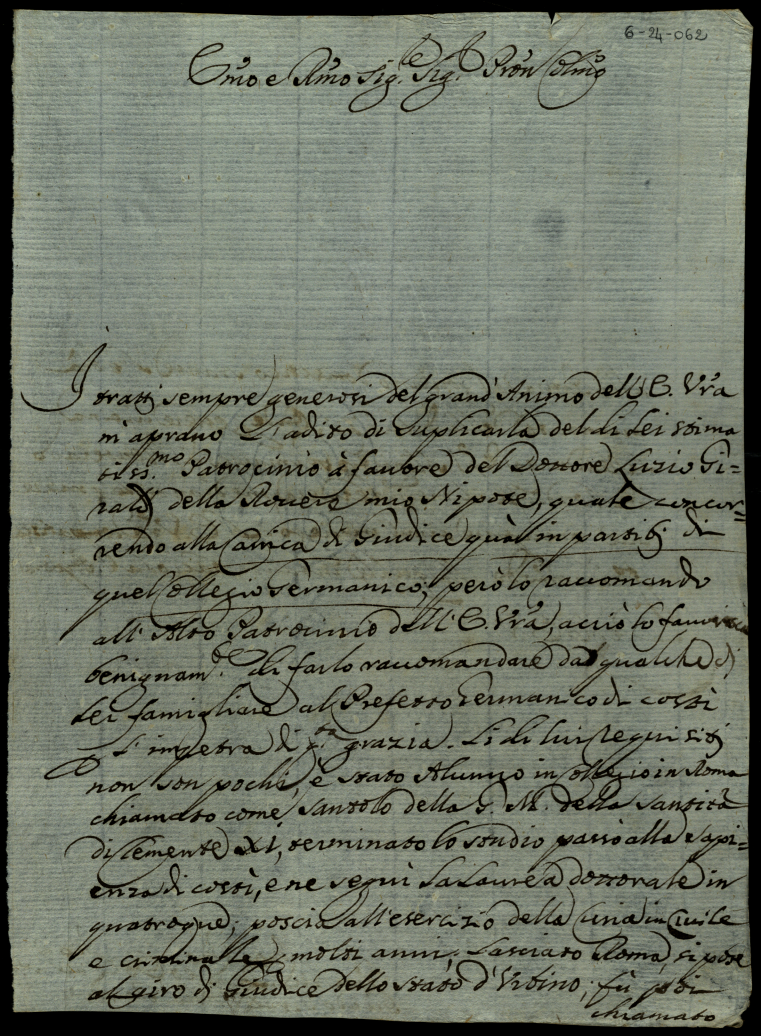 6-24-062
Emo e Rmo Sig.re Sig.r Prōn Colmo
I tratti sempre generosi del grand'Animo dell'E. Vra
m'aprano l'adito di suplicarla del di Lei stima
tiss.mo Patrocinio à favore del Dottore Luzio Gi=
raldi della Rovere mio Nipote, quale concor=
rendo alla Carica di Giudice quà in partiti di
quel Collegio Germanico; però lo raccomando
all'Alto Patrocinio dell'E. Vra, acciò lo favorisca
benignam.e di farlo raccomandare da qualche di
Lei famigliare al Prefetto Germanico di costì
p l'impetra di q.ta grazia. Li di lui requisiti
non son pochi, è stato Alunno in Collegio in Roma
chiamato come santolo della S. M. della Santità
di Clemente XI, terminato lo studio passò alla Sapi=
enza di costì, e ne seguì la Laurea dottorale in
quatroque; poscia all'esercizio della Curia in Civile
e criminale p molti anni; Lasciato Roma, si pose
al giro di Giudice dello Stato d'Urbino; fù poi
chiamato